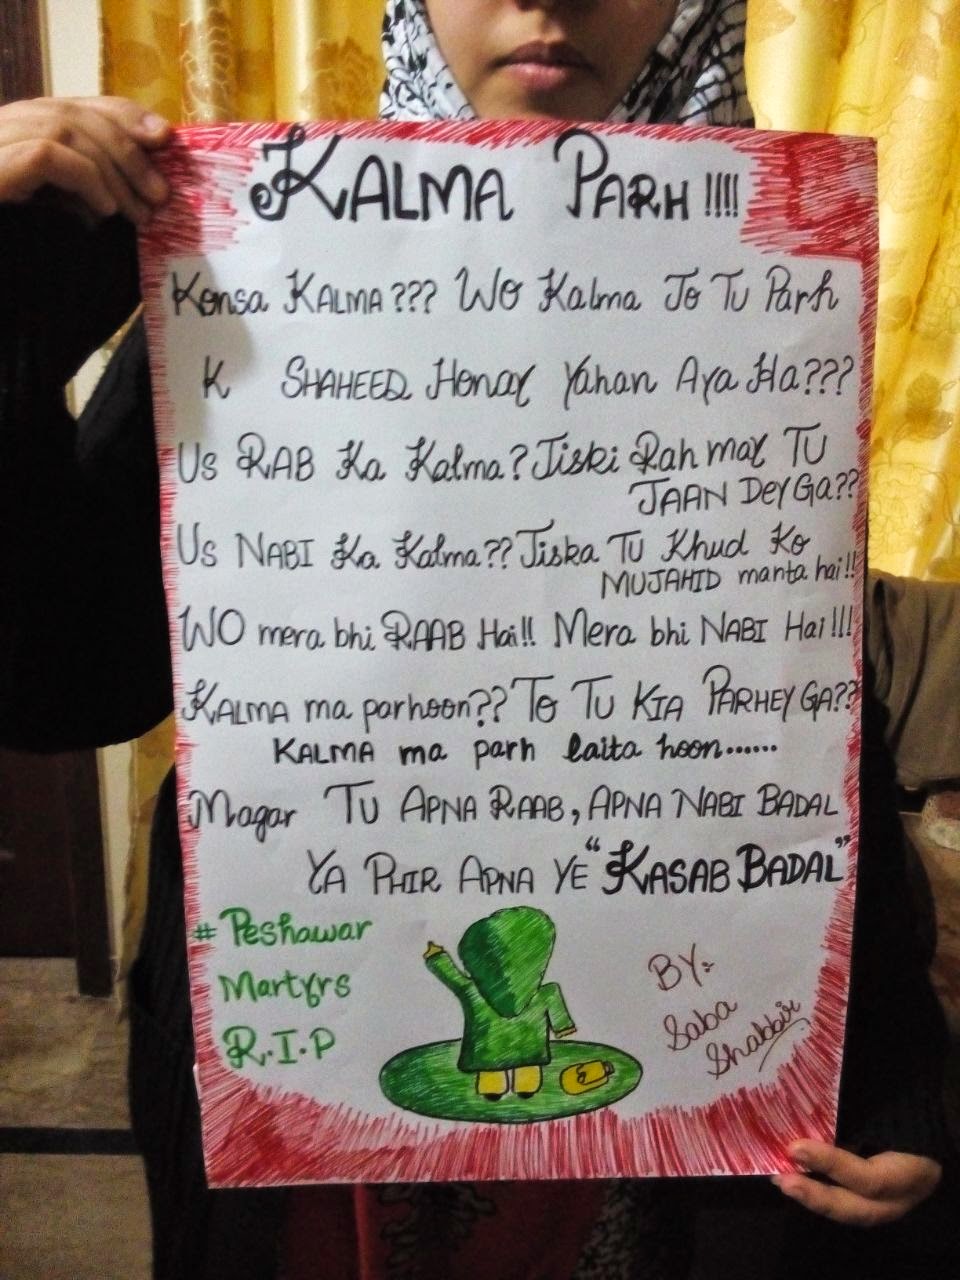 KALMA PARH !!!!
Konsa KALMA??? WO Kalma Jo Tu Parh
K SHAHEED Honay Yahan Aya Ha???
Us RAB Ka Kalma? Jiski Rah may TU
JAAN Dey Ga??
Us NABI Ka Kalma?? Jiska TU Khud Ko
MUJAHID manta hai!!
WO mera bhi RAAB Hai!! Mera bhi NABI Hai!!!
KALMA ma parhoon?? To TU KIA PARHEY GA??
KALMA ma parh laita hoon......
Magar TU APNA RAAB, APNA NABI BADAL
YA PHIR APNA YE "KASAB BADAL"
# Peshawar
Martyrs
R.I.P
BY:
Saba
Shabbir